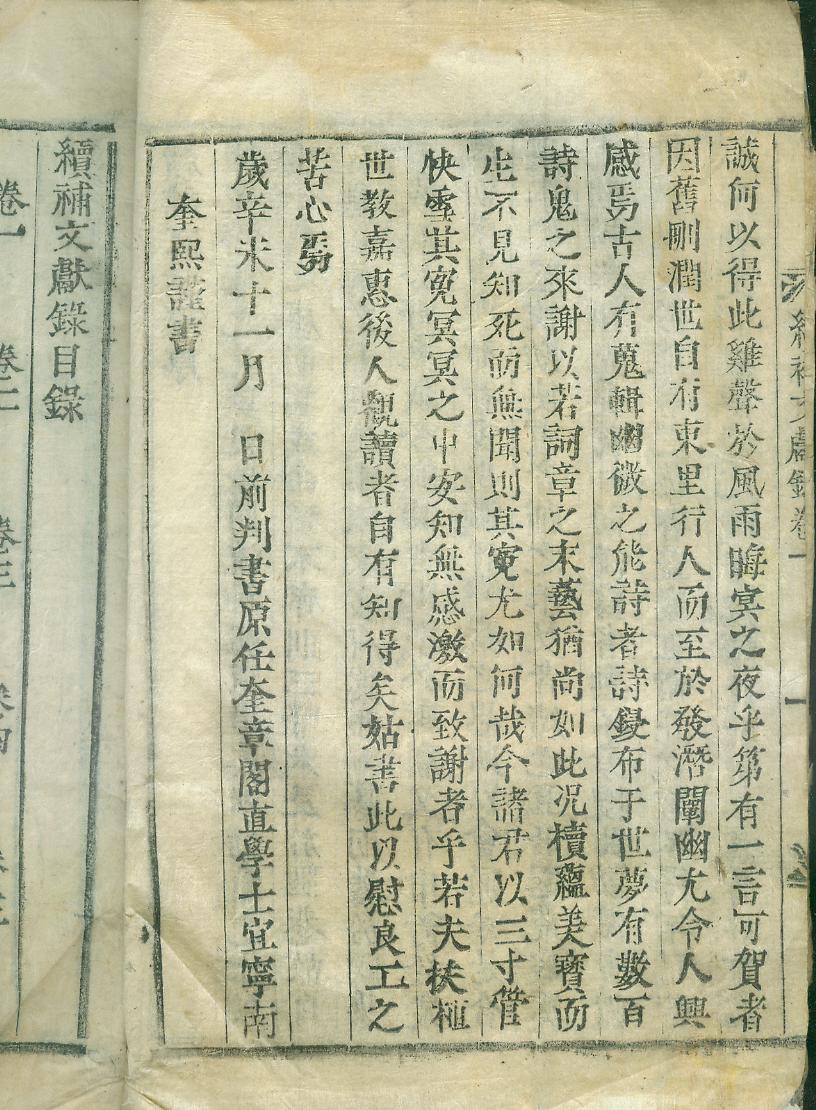 續補文獻錄卷一
一
誠何以得此雞聲於風雨晦冥之夜乎第有一言可賀者
因舊刪潤世自有東里行人而至於發潛闡幽尤令人興
感焉古人有蒐輯幽微之能詩者詩鋟布于世夢有數百
詩鬼之來謝以若詞章之末藝猶尚如此况櫝蘊美寶而
生不見知死而無聞則其寃尤如何哉今諸君以三寸管
快雪其寃冥冥之中安知無感激而致謝者乎若夫扶植
世教嘉惠後人觀讀者自有知得矣姑書此以慰良工之
苦心焉
歲辛未十一月 日前判書原任奎章閣直學士宜寧南
奎熙謹書
續補文獻錄目錄
卷一 卷二 卷三